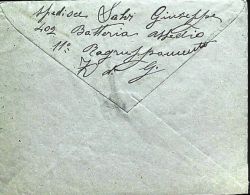 spedisce Salvi Giuseppe
402 Batteria assedio
11º Raggruppamento
Z. d. G.